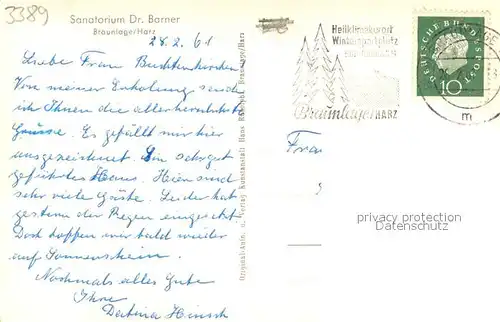 3389
Sanatorium Dr. Barner
Braunlage/Harz
28.2.61
Liebe Frau
Von meiner Erholung sende
ich Ihnen die allerherzlichsten
Grüsse. Es gefällt mir hier
ausgezeichnet. Ein sehr gut
geführtes Haus. Hier sind
sehr viele Gäste. Leider hat
gestern der Regen eingesetzt
Doch hoffen wir bald wieder
auf Sonnenschein.
Nochmals alles Gute
Ihre
Hirsch
Original-Aufn. u. Verlag Kunstanstalt Hans Braunlage/Harz
Heilklimakurort
Wintersportplatz
Braunlage HARZ
DEUTSCHE BUNDESPOST
10
m
Frau
privacy protection
Datenschutz